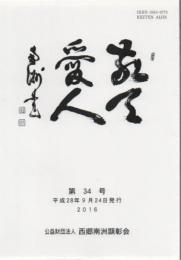 ISSN 0913-0776
KEITEN AIJIN
敬天
愛人
南洲書
第 34 号
平成28年9月24日発行
2016
公益財団法人 西郷南洲顕彰会